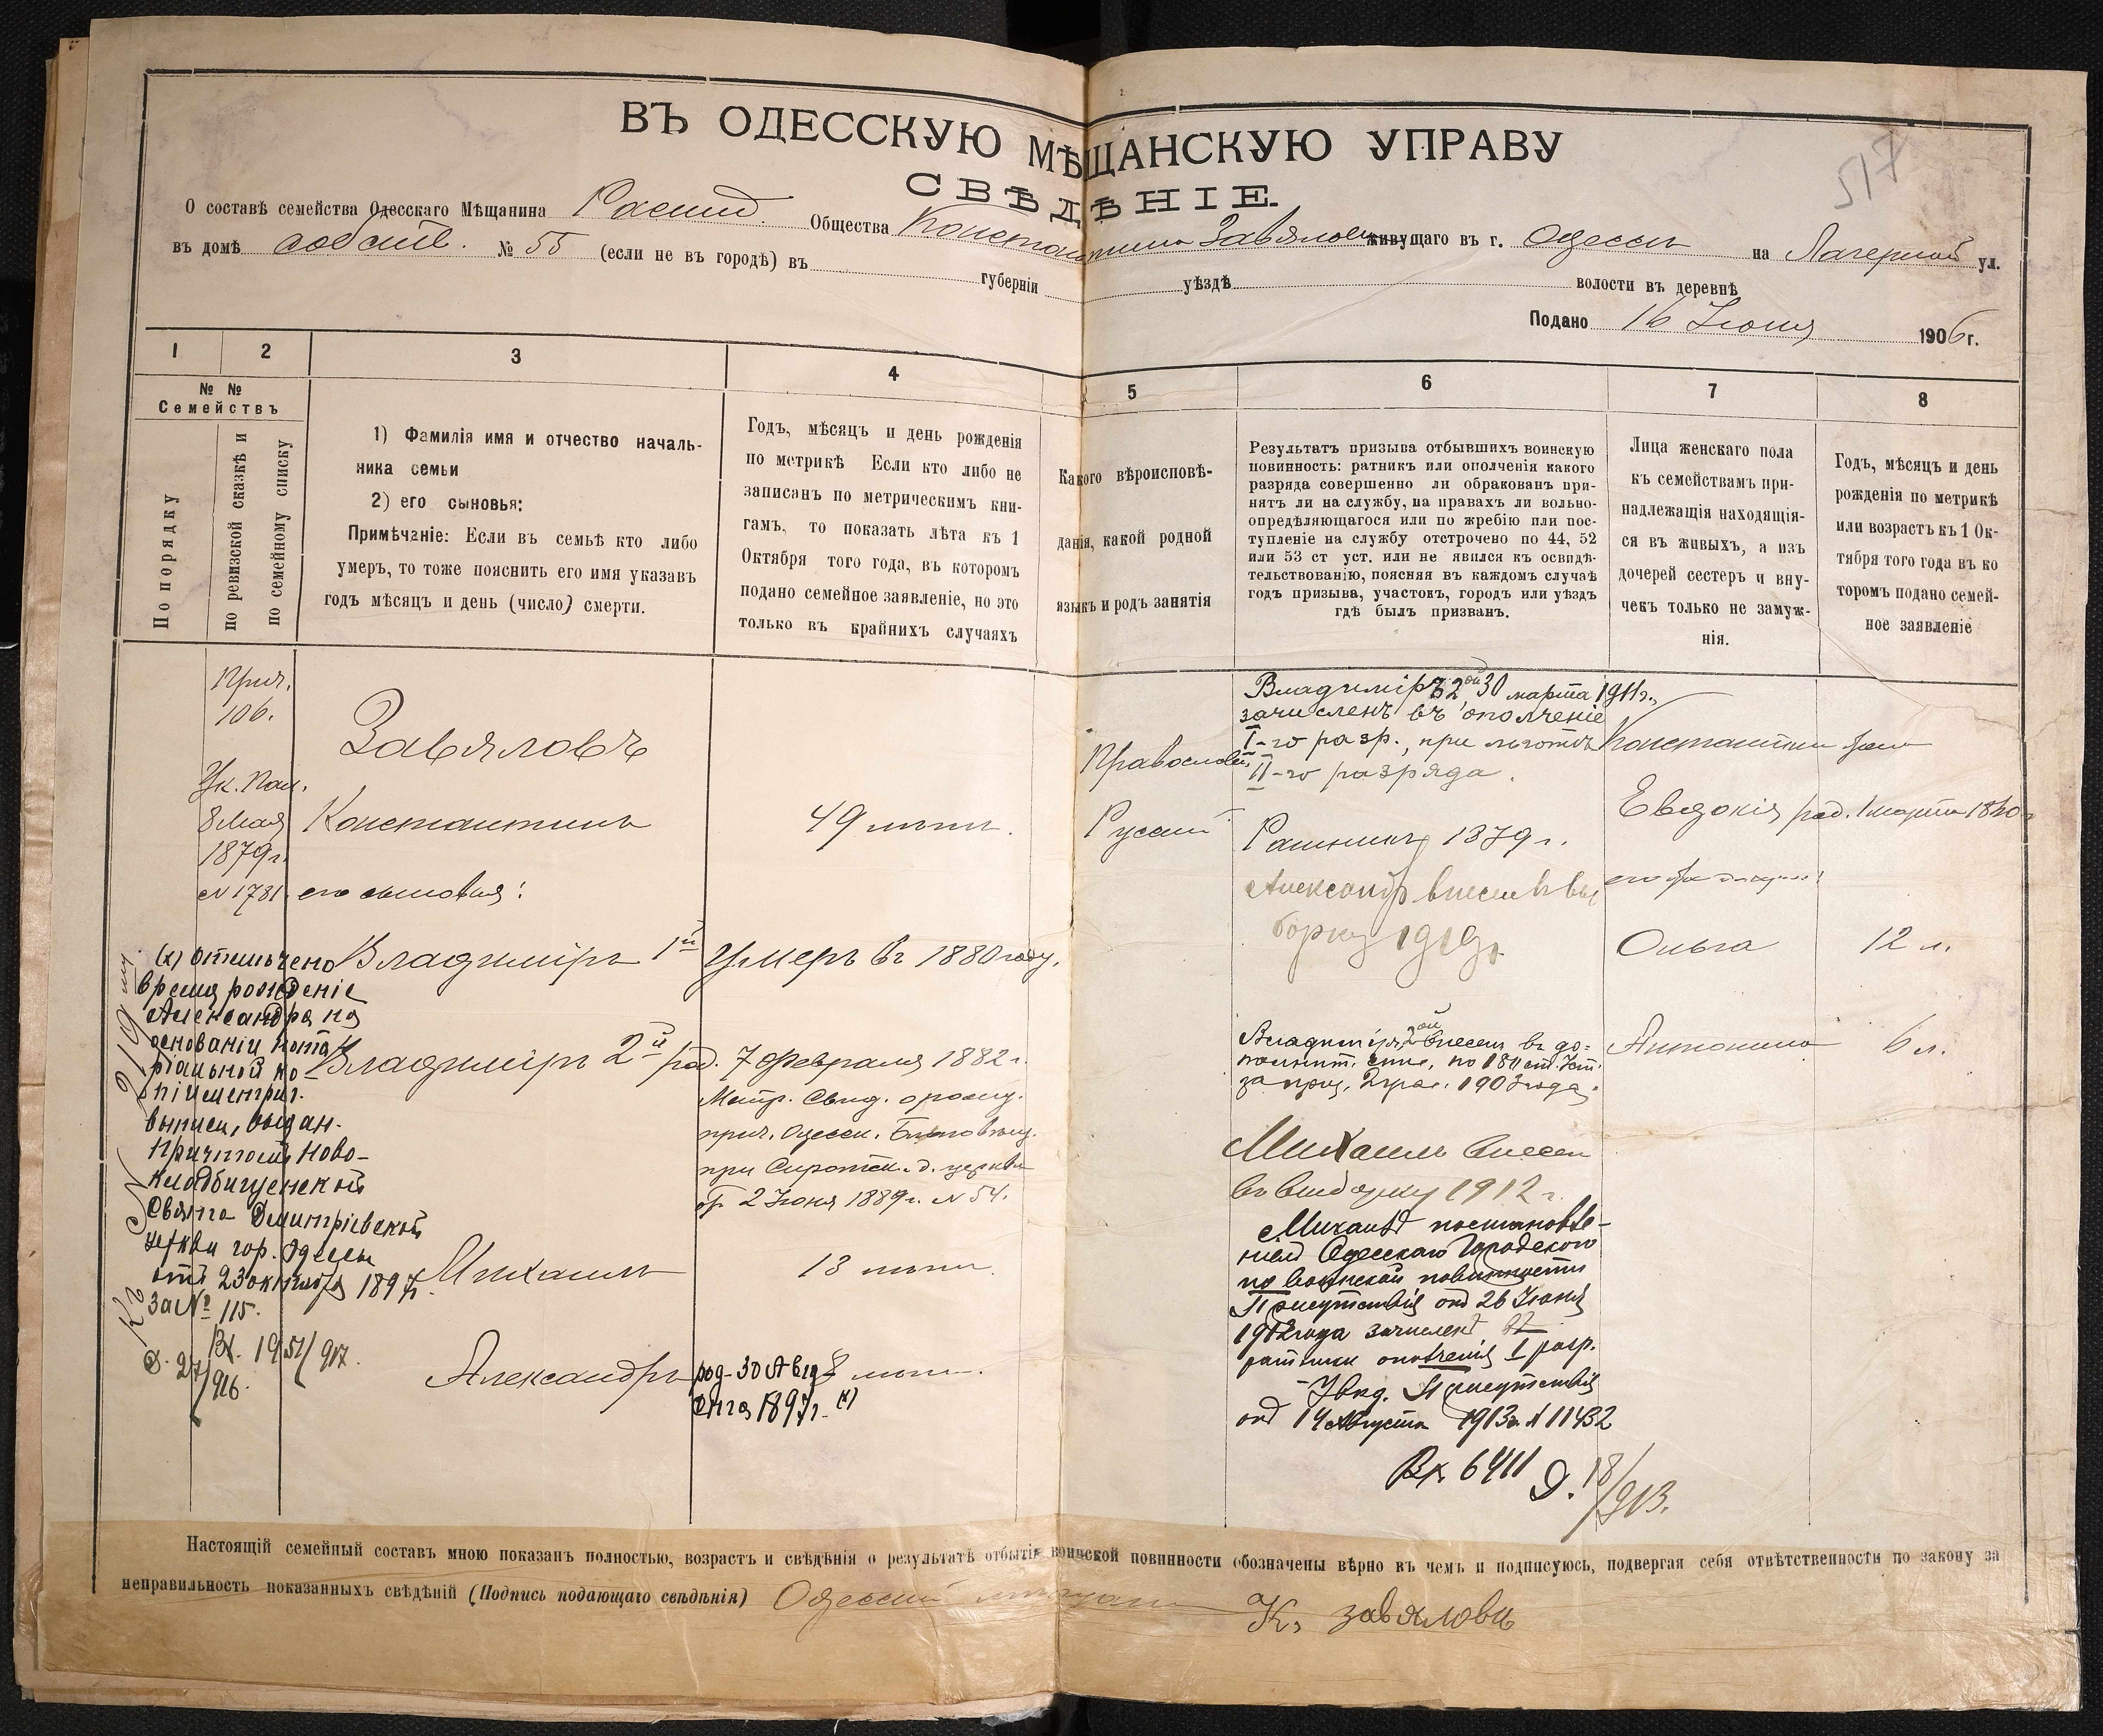 517
ВЪ ОДЕССКУЮ МѢЩАНСКУЮ УПРАВУ
СВѢДѢНІЕ.
О составѣ семейства Одесскаго Мѣщанина Общества Константина Завялова живущаго въ г. Одессѣ на Лагерной ул.
въ домѣ собств. № 55 (если не въ городѣ) въ губерніи уѣздѣ волости въ деревнѣ
Подано 16 Іюня 1906 г.
1 2 3 4 5 6 7 8
№ №
Семействъ
По порядку
по ревизской сказкѣ и
по семейному списку
1) Фамилія имя и отчество началь-
ника семьи
2) его сыновья:
Примѣчаніе: Если въ семьѣ кто либо
умеръ, то тоже пояснить его имя указавъ
годъ мѣсяцъ и день (число) смерти.
Годъ, мѣсяцъ и день рожденія
по метрикѣ Если кто либо не
записанъ по метрическимъ кни-
гамъ, то показать лѣта къ 1
Октября того года, въ которомъ
подано семейное заявленіе, но это
только въ крайнихъ случаяхъ
Какого вѣроисповѣ-
данія, какой родной
языкъ и родъ занятія
Результатъ призыва отбывшихъ воинскую
повинность: ратникъ или ополченія какого
разряда совершенно ли обракованъ при-
нятъ ли на службу, на правахъ ли вольно-
опредѣляющагося или по жребію или пос-
тупленіе на службу отстрочено по 44, 52
или 53 ст уст. или не явился къ освидѣ-
тельствованію, поясняя въ каждомъ случаѣ
годъ призыва, участокъ, городъ или уѣздъ
гдѣ былъ призванъ.
Лица женскаго пола
къ семействамъ при-
надлежащія находящія-
ся въ живыхъ, а изъ
дочерей сестеръ и вну-
чекъ только не замуж-
нія.
Годъ, мѣсяцъ и день
рожденія по метрикѣ
или возрастъ къ 1 Ок-
тября того года въ ко
торомъ подано семей-
ное заявленіе
Прич.
106.
Ук. Пал.
8 Мая
1879 г.
№ 1731
Завяловъ
Константинъ
49 лѣтъ.
его сыновья:
Владиміръ 1й
Умеръ въ 1880 году.
Владиміръ 2й
род. 7 Февраля 1882 г.
Метр. Свид. о рожд.
прич. Одесск. Благовѣщ.
при Сиротск. д. церкви
от 2 Іюня 1889 г. № 54.
Михаилъ
13 лѣтъ.
Александръ
род. 30 Авгу 8 лѣтъ.
ста 1897 г. х)
(х) отмѣчено
время рожденіе
Александра на
основаніи нота-
ріальной ко-
піи метрич.
выписи, выдан.
Причтомъ Ново-
кладбищенской
Свято Димитріевской
церкви гор. Одессы
отъ 23 октября 1897 г.
за № 115.
Вх. 1951/917.
Д. 27/916.
Православн.
Русскій
Владиміръ 2ой 30 марта 1911 г.,
зачисленъ въ ополченіе
I-го разр., при льготѣ
II-го разряда.
1879 г.
Александръ внесенъ въ вы
борку 1919 г.
Владиміръ 2ой внесенъ въ до-
полнит. спис. по 181 ст. Уст.
за приз. 1903 года.
Михаилъ внесен
въ выборку 1912 г.
Михаилъ постановле-
ніемъ Одесскаго Городского
по воинской повинности
Присутствія отъ 26 Іюня
1912 года зачисленъ въ
ратники ополченія I разр.
Увѣд. Присутствія
отъ 14 Августа 1913 г. № 11432
Вх 6411 Д. 18/913.
Константина жена
Евдокія род. 1 марта
его дочери:
Ольга
12 л.
Антонина
6 л.
Настоящій семейный составъ мною показанъ полностью, возрастъ и свѣдѣнія о результатѣ отбытія воинской повинности обозначены вѣрно въ чемъ и подписуюсь, подвергая себя отвѣтственности по закону за
неправильность показанныхъ свѣдѣній (Подпись подающаго свѣдѣнія) Одесскій мѣщанинъ К. завяловъ